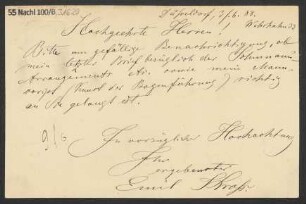 55 Nachl 100/B,
Düsseldorf, 7/6. 82.
Hochgeehrte Herren!
Bitte um gefällige Benachrichtigung, ob
mein letzter Brief bezüglich des Schumann
Arrangements etc. sowie mein Manu-
script (der Bogenführung) richtig
an Sie gelangt ist.
In vorzüglicher Hochachtung
Ihr
ergebenster
Emil